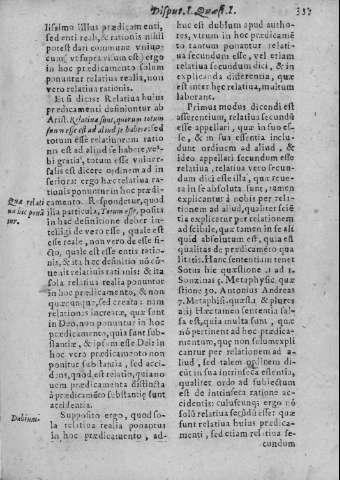 Disput. I. Quæst. I. 337
lissimo illius prædicamenti,
sed enti reali, & rationis nihil
potest dari commune vniuo-
cum, vt supra vidimus est; ergo
in hoc prædicamento solum
ponuntur relatiua realia, non
vero relatiua rationis.
Et si dicas: Relatiua huius
prædicamenti definiuntur ab
Arist. Relatiua sunt, quorum totum
suum esse est ad aliud se habere: sed
totum esse relationum ratio
nis est ad aliud se habere, ver-
bi gratia, totum esse vniuer-
salis est dicere ordinem ad in
feriora: ergo hæc relatiua ra-
tionis ponuntur in hoc prædi-
camento. Respondetur, quod
illa particula, Totum esse, posita
in hac definitione debet in-
telligi de vero esse, quale est
esse reale, non vero de esse fi-
cto, quale est esse entis ratio-
nis, & ita hæc definitio nō cō-
uenit relatiuis rationis: & ita
sola relatiua realia ponuntur
in hoc prædicamento, & non
quæcunque, sed creata: nam
relationes increatæ, quæ sunt
in Deo, non ponuntur in hoc
prædicamento, quia sunt sub-
stantiæ, & ipsum esse Dei: in
hoc vero prædicamento non
ponitur substantia, sed acci-
dens, quod est relatio, quia no-
uem prædicamenta distincta
à prædicamēto substantiæ sunt
accidentia.
Supposito ergo, quod so-
la relatiua realia ponantur
in hoc prædicamento, ad-
Quæ relati
ua hoc ponā
tur.
Dubium.
huc est dubium apud autho-
res, vtrum in hoc prædicamē
to tantum ponantur relatiua
secundum esse, vel etiam
relatiua secundum dici, & in
explicanda differentia, quæ
est inter hęc relatiua, multum
laborant.
Primus modus dicendi est
asserentium, relatiua secundū
esse appellari, quæ in suo es-
se, & in sua essentia inclu-
dunt ordinem ad aliud, &
ideo appellari secundum esse
relatiua, relatiua vero secun-
dum dici esse illa, quæ reue-
ra in se absoluta sunt, tamen
explicantur à nobis per rela-
tionem ad aliud, qualiter sciē
tia explicatur per relationem
ad scibile, quæ tamen in se ali
quid absolutum est, quia est
qualitas de prædicamēto qua
litatis. Hanc sententiam tenet
Sotus hic quæstione 1. ad 1.
Sonzinas 5. Metaphysic. quæ
stione 30. Antonius Andreas
7. Metaphis. quæst 8. & plures
alij. Hæc tamen sententia fal-
sa est, quia multa sunt, quæ
nō pertinent ad hoc prædica-
mentum, quę non solum expli
cantur per relationem ad a-
liud, sed talem ordinem di-
cūt in sua intrinseca essentia,
qualiter ordo ad subiectum
est de intrinseca ratione ac-
cidentis: cuiuscunq; ergo nō
solū relatiua secūdū esse quæ
sunt relatiua huius prædica-
menti, sed etiam relatiua se-
cundum